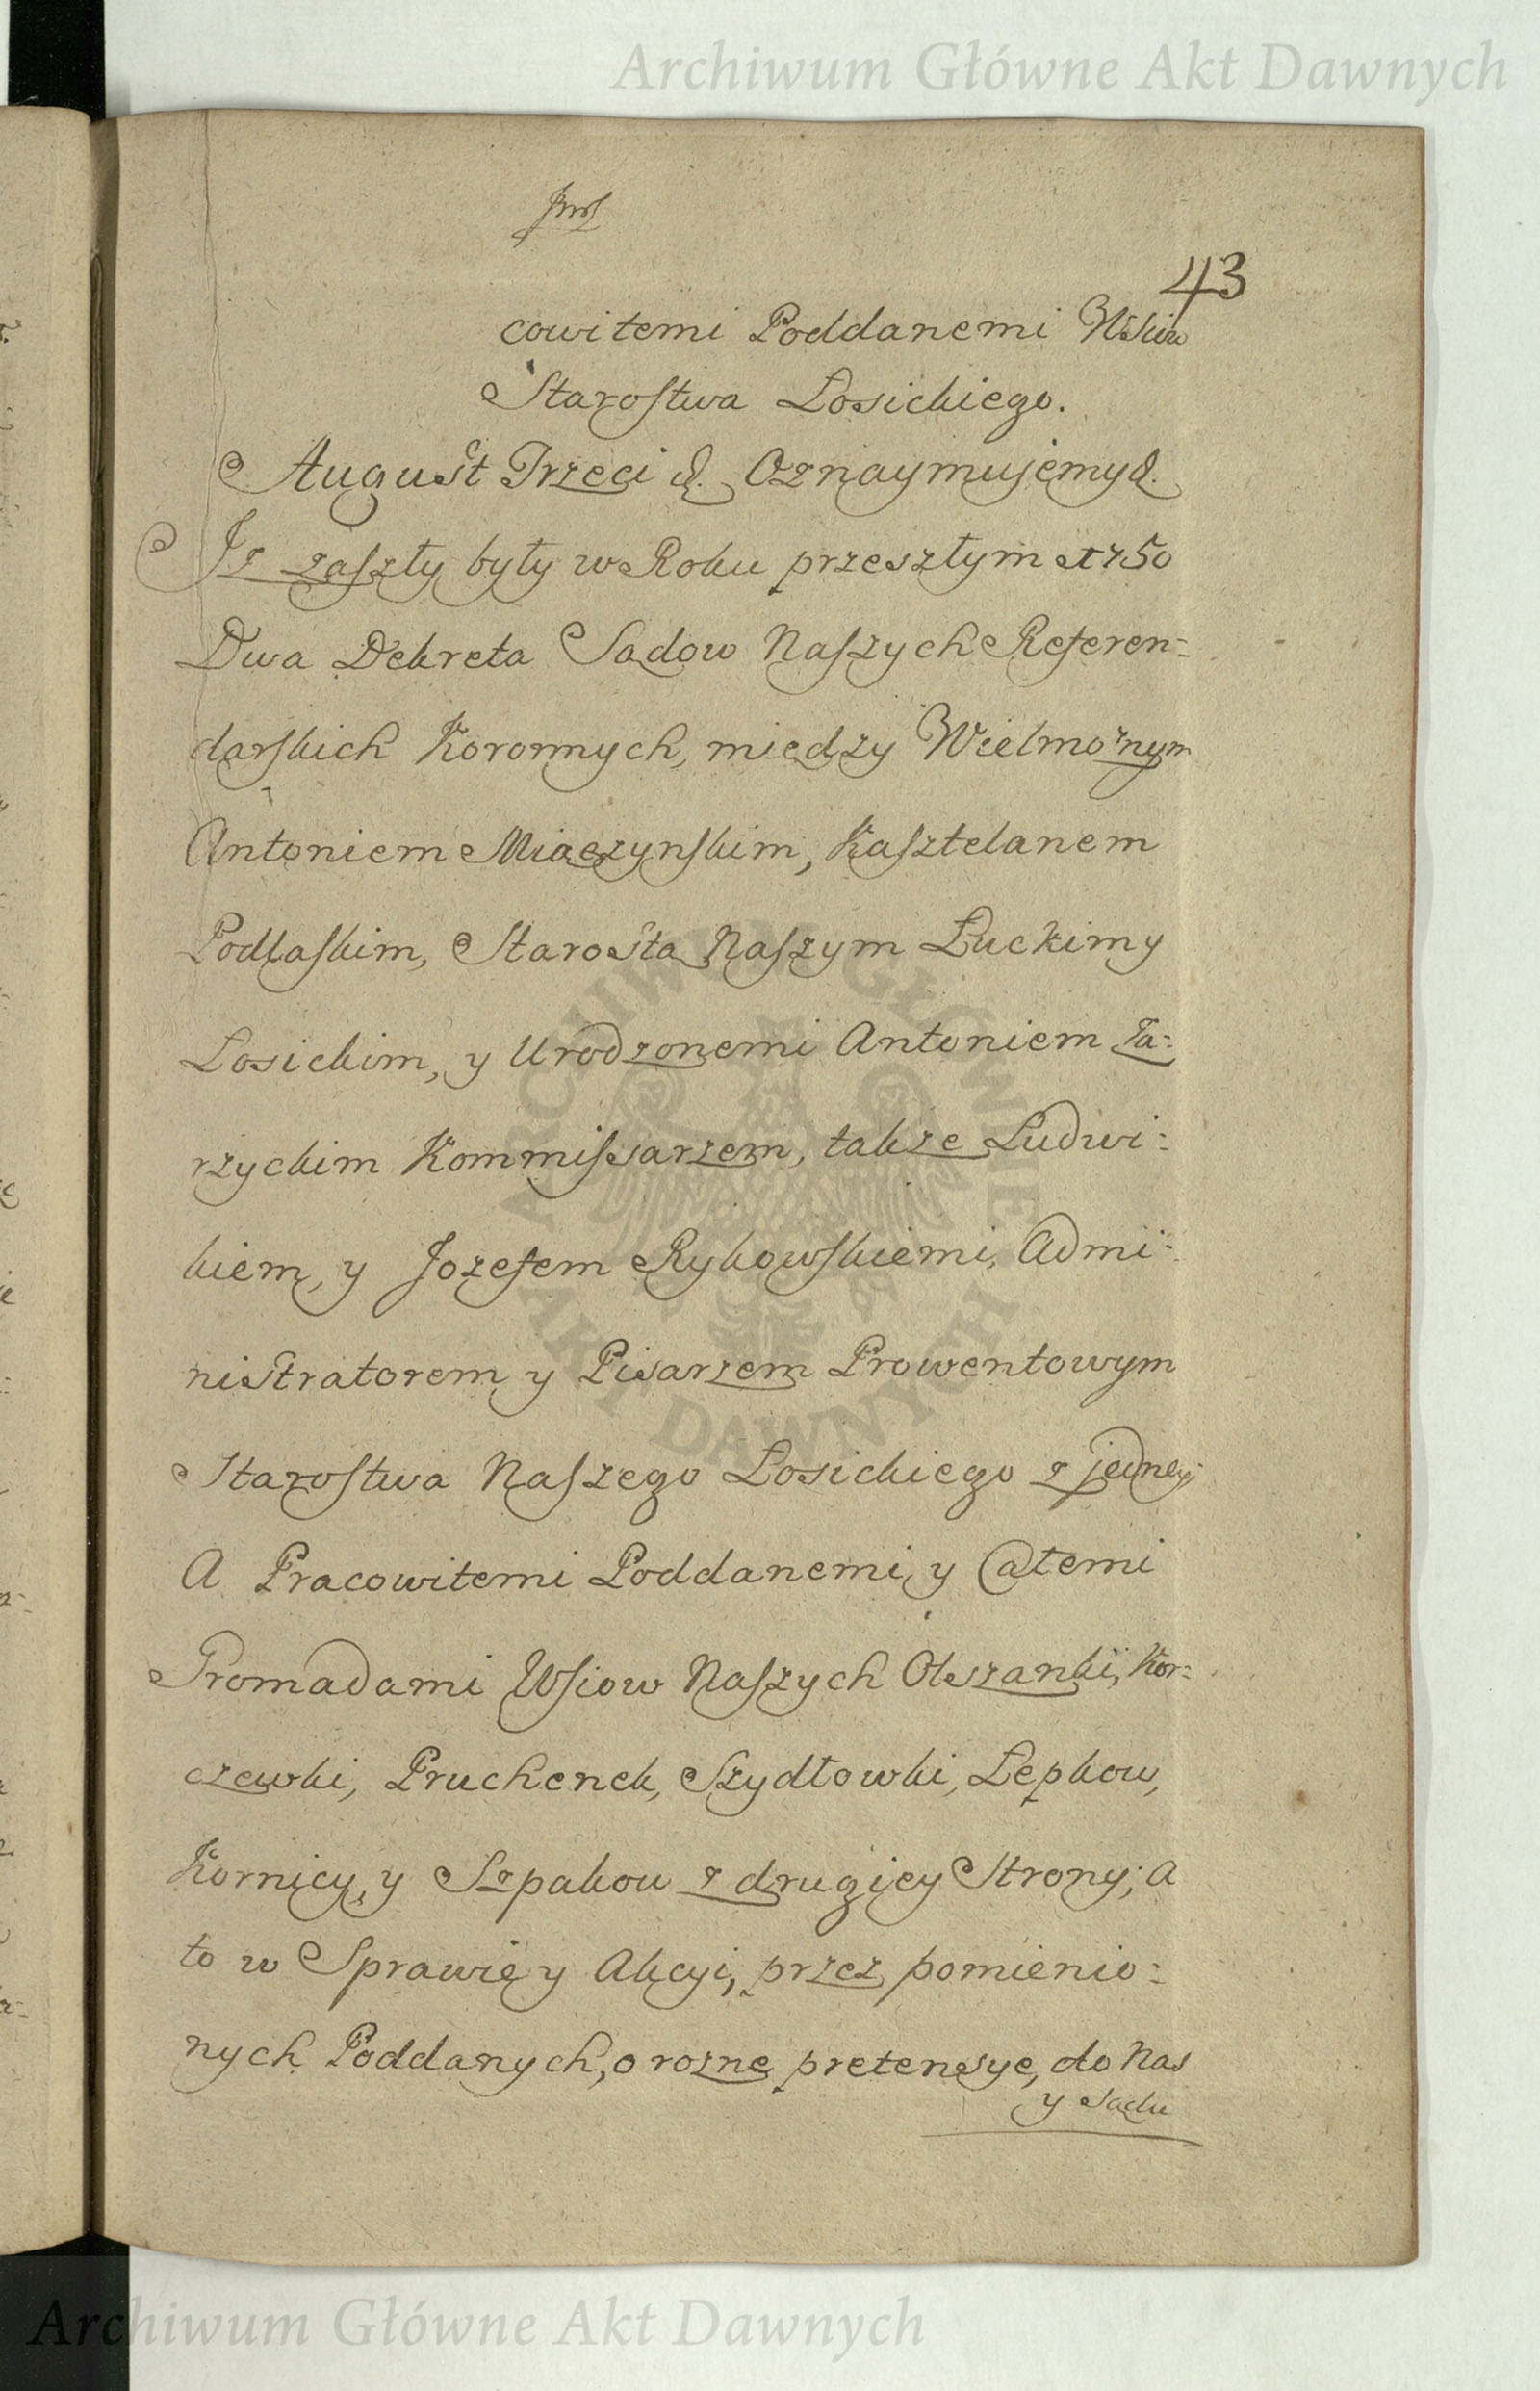 Archiwum Główne Akt Dawnych
43
cowitemi Poddanemi Wsiow
Starostwa Losickiego.
August Trzeci &. Oznaymujemy &.
Iz zaszły były w Roku przeszłym 1750
Dwa Dekreta Sadow Naszych Referen=
darskich Koronnych, miedzy Wielmoznym
Antoniem Miaczynskim, Kasztelanem
Podlaskim, Starosta Naszym Łuckim y
Losickim, y Urodzonemi Antoniem Za=
rzyckim Kommissarzem, takze Ludwi=
kiem, y Jozefem Rykowskiemi, Admi=
nistratorem y Pisarzem Prowentowym
Starostwa Naszego Losickiego z jedney
A Pracowitemi Poddanemi, y Całemi
Gromadami Wsiow Naszych Olszanki, Kor=
czewki, Pruchenek, Szydłowki, Lepkow,
Kornicy, y Szpakow z drugiey Strony; a
to w Sprawie y Akcyi, przez pomienio=
nych Poddanych, o rozne pretensye, do Nas
y Sadu
ARCHIWUM GŁÓWNE
AKT DAWNYCH
Archiwum Główne Akt Dawnych